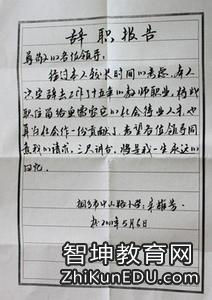 辞职报告
尊敬的各位领导：
经过本人较长时间的考虑，本人
决定辞去工作了十五年的教师职业，将此
职位留给更需要它的社会待业人才，也
算为社会作一份贡献了。希望各位领导同
意我的请求，三尺讲台，将是我一生永远的
回忆。
桐乡市中山路小学：
于2011年5月6日
智坤教育网
ZhiKunEDU.com